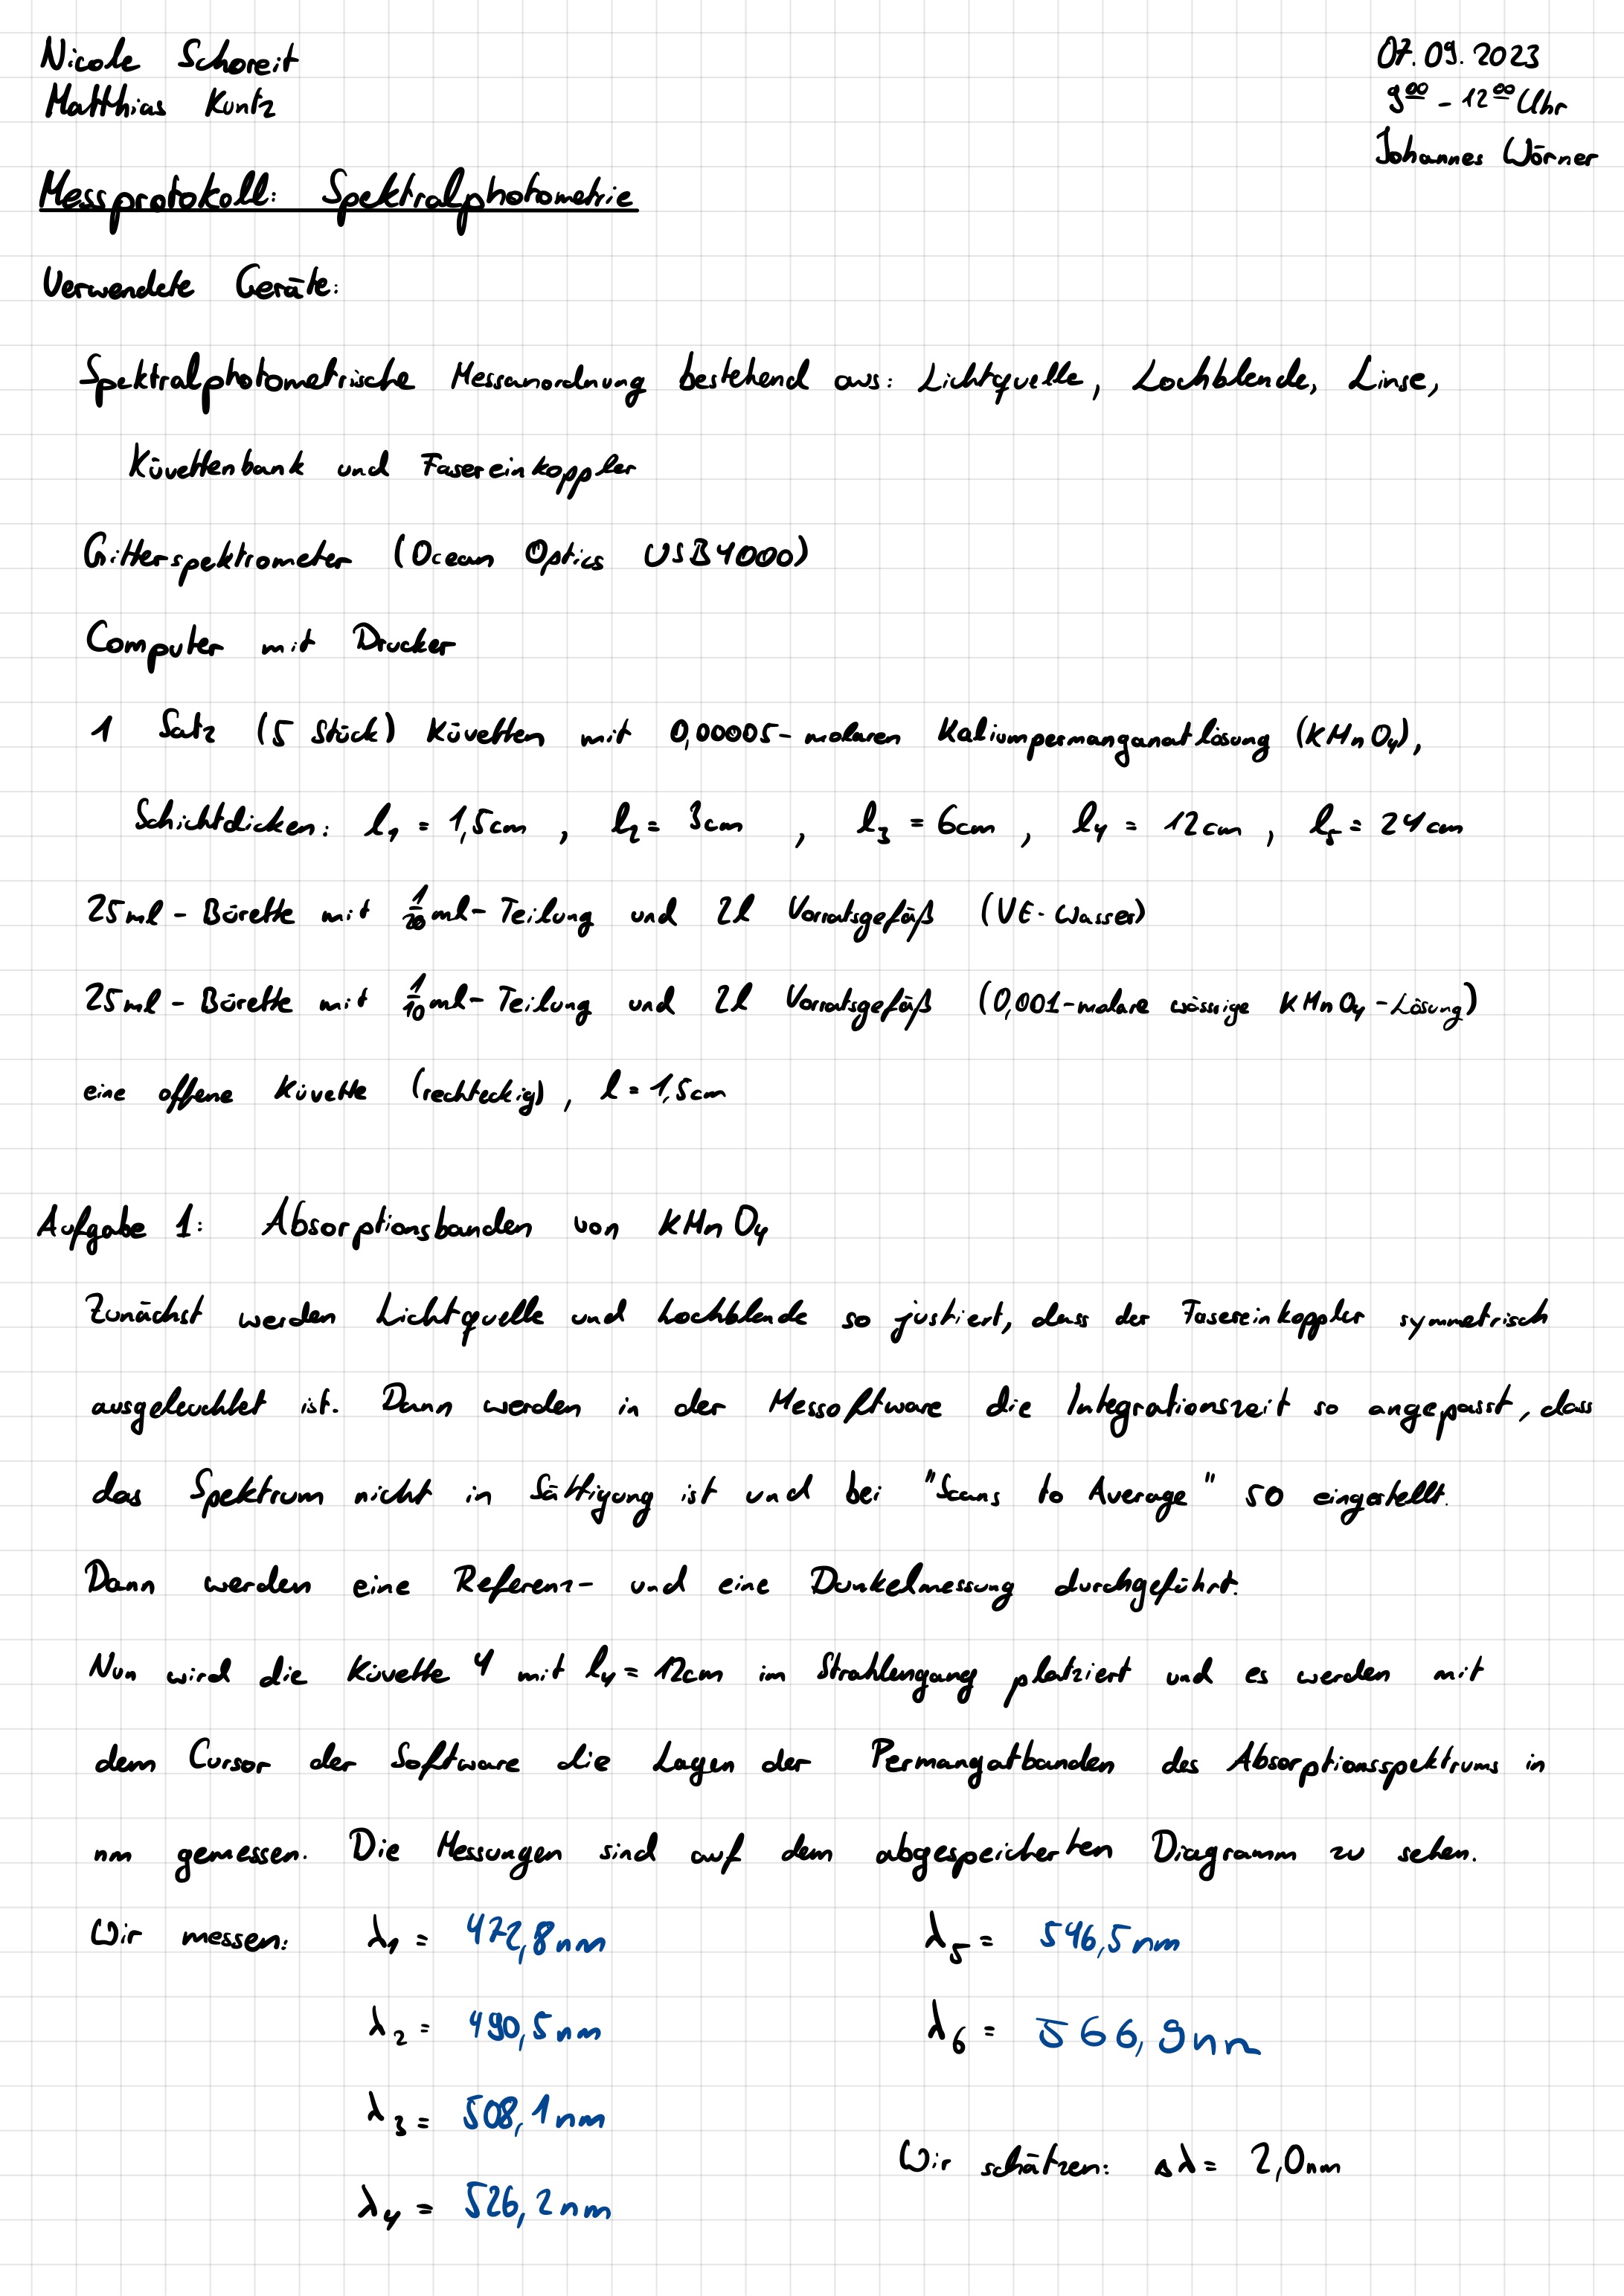 Nicole Schoreit
Matthias Kuntz
07.09.2023
9⁰⁰ - 12⁰⁰ Uhr
Johannes Wörner
Messprotokoll: Spektralphotometrie
Verwendete Geräte:
Spektralphotometrische Messanordnung bestehend aus: Lichtquelle, Lochblende, Linse,
Küvettenbank und Fasereinkoppler
Gitterspektrometer (Ocean Optics USB4000)
Computer mit Drucker
1 Satz (5 Stück) Küvetten mit 0,00005-molaren Kaliumpermanganatlösung (KMnO₄),
Schichtdicken: l₁ = 1,5cm , l₂ = 3cm , l₃ = 6cm , l₄ = 12cm , l₅ = 24cm
25ml - Bürette mit 1/20 ml - Teilung und 2l Vorratsgefäß (VE-Wasser)
25ml - Bürette mit 1/10 ml - Teilung und 2l Vorratsgefäß (0,001-molare wässrige KMnO₄-Lösung)
eine offene Küvette (rechteckig), l = 1,5cm
Aufgabe 1: Absorptionsbanden von KMnO₄
Zunächst werden Lichtquelle und Lochblende so justiert, dass der Fasereinkoppler symmetrisch
ausgeleuchtet ist. Dann werden in der Messoftware die Integrationszeit so angepasst, dass
das Spektrum nicht in Sättigung ist und bei "Scans to Average" 50 eingestellt.
Dann werden eine Referenz- und eine Dunkelmessung durchgeführt.
Nun wird die Küvette 4 mit l₄ = 12cm im Strahlengang platziert und es werden mit
dem Cursor der Software die Lagen der Permangatbanden des Absorptionsspektrums in
nm gemessen. Die Messungen sind auf dem abgespeicherten Diagramm zu sehen.
Wir messen: λ₁ = 472,8nm λ₅ = 546,5nm
λ₂ = 490,5nm λ₆ = 566,9nm
λ₃ = 508,1nm
Wir schätzen: Δλ = 2,0nm
λ₄ = 526,2nm